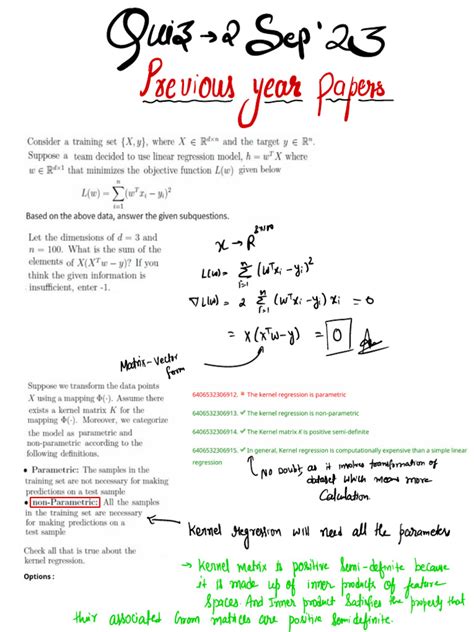 Quiz → 2 Sep '23
Previous year Papers
Consider a training set {X, y}, where X ∈ ℝ^{d×n} and the target y ∈ ℝ^n.
Suppose a team decided to use linear regression model, h = w^T X where
w ∈ ℝ^{d×1} that minimizes the objective function L(w) given below
L(w) = ∑_{i=1}^{n} (w^T x_i − y_i)^2
Based on the above data, answer the given subquestions.
Let the dimensions of d = 3 and
n = 100. What is the sum of the
elements of X(X^T w − y)? If you
think the given information is
insufficient, enter -1.
L(w) = ∑_{i=1}^{n} (w^T x_i − y_i)^2
∇L(w) = 2 ∑_{i=1}^{n} (w^T x_i − y_i) x_i = 0
= X(X^T w − y) = 0 Ans
Matrix-Vector
form
Suppose we transform the data points
X using a mapping Φ(·). Assume there
exists a kernel matrix K for the
mapping Φ(·). Moreover, we categorize
the model as parametric and
non-parametric according to the
following definitions.
• Parametric: The samples in the
training set are not necessary for making
predictions on a test sample
• non-Parametric: All the samples
in the training set are necessary
for making predictions on a
test sample
Check all that is true about the
kernel regression.
Options :
6406532306912. ✖ The kernel regression is parametric
6406532306913. ✔ The kernel regression is non-parametric
6406532306914. ✔ The Kernel matrix K is positive semi-definite
6406532306915. ✔ In general, Kernel regression is computationally expensive than a simple linear
regression
No Doubt, as it involves transformation of
dataset which means more
Calculation.
Kernel regression will need all the parameters
→ Kernel Metrix is positive Semi-definite because
it is made up of inner products of feature
Spaces And Inner product Satisfies the property that
their associated Gram matices are positive Semidefinite.